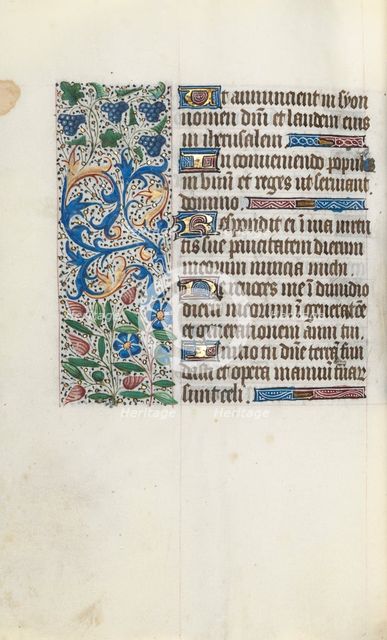 Ut annuncient in syon
nomen dñi et laudem eius
in iherusalem
In conveniendo populos
in unũ et reges ut serviant
domino
Respondit ei in via virtu
tis sue paucitatem dierum
meorum nuncia michi
Ne revoces me ī dimidio
dierũ meorum ĩ generacõe
et generationem anni tui
Inicio tu dñe terrã fun
dasti et opera manuũ tuar
sunt celi
Heritage
Heritage